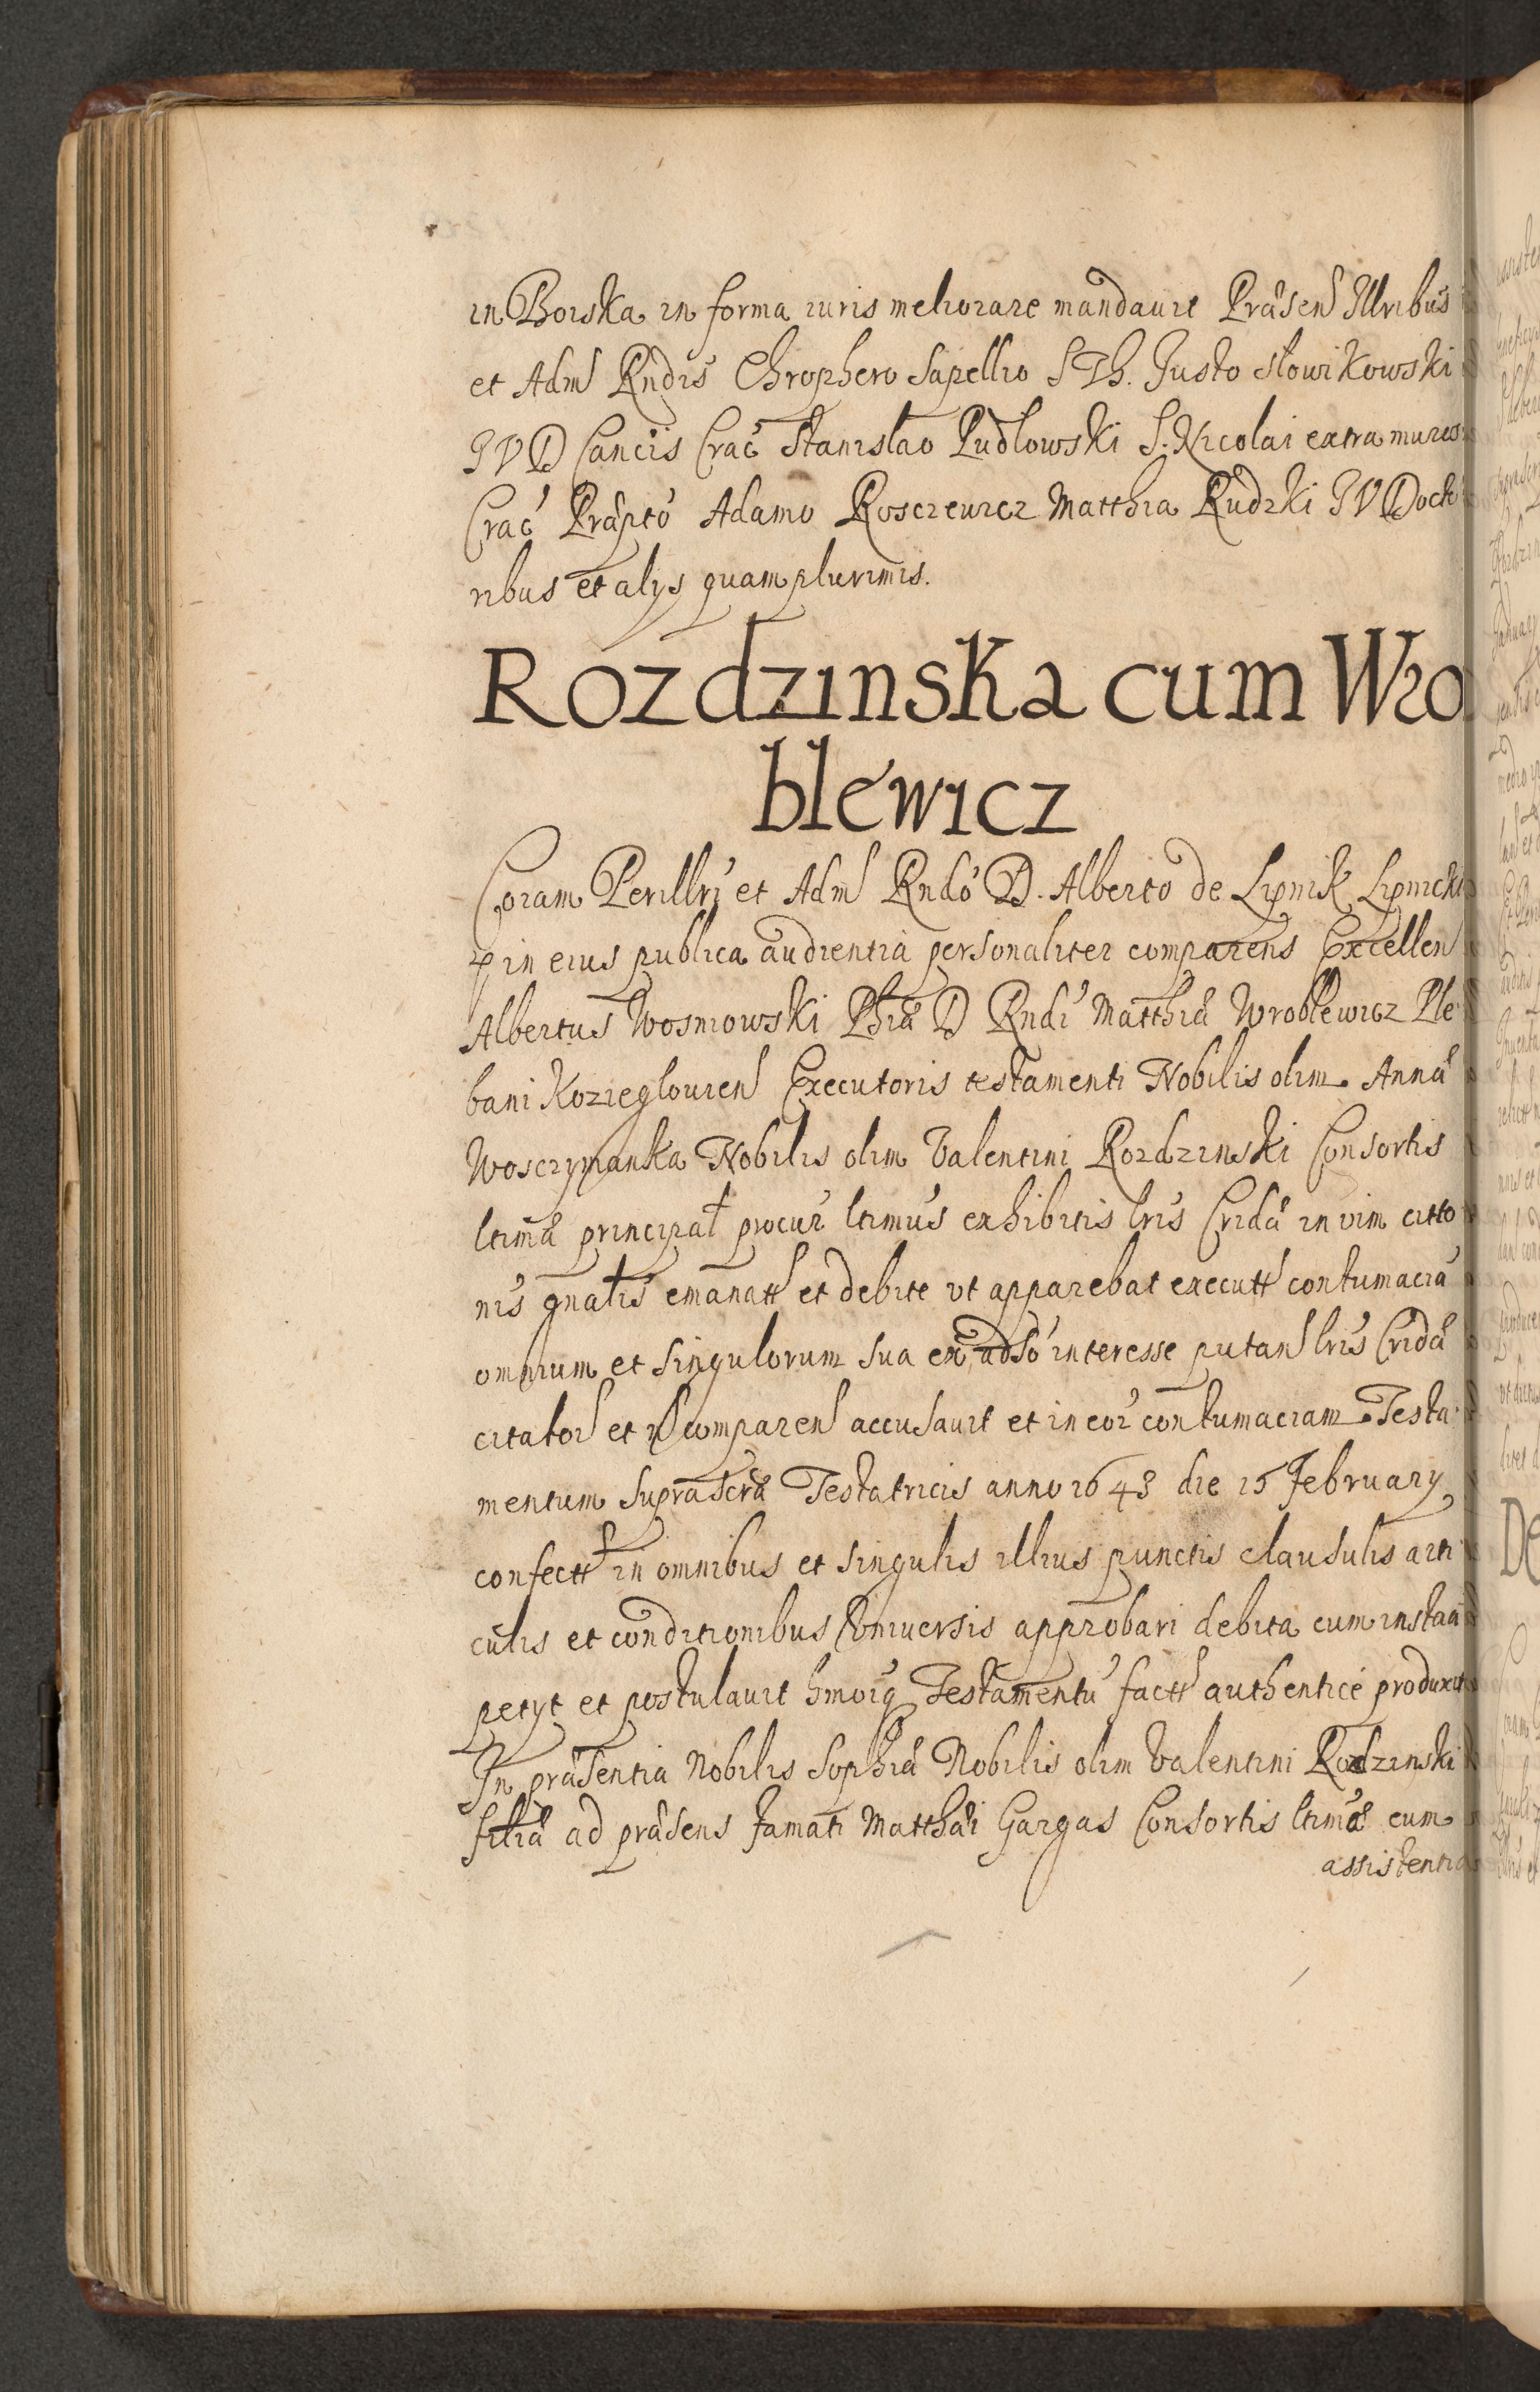 in Borska in forma iuris meliorare mandauit Præsen Illribus
et Adm Rndis Chrophero Sapellio S Th. Justo Słowikowski
J V D Cancis Crac Stanislao Pudłowski S. Nicolai extra muros
Crac Præpto Adamo Rosczewicz Matthia Rudzki J V Docto
ribus et alys quam plurimis.
Rozdzinska cum Wro
blewicz
Coram Perillri et Adm Rndo D. Alberto de Lipnik Lipnicki
in eius publica audientia personaliter comparens Excellen
Albertus Wosniowski Phiæ D Rndi Matthiæ Wroblewicz Ple
bani Kozieglouien Executoris testamenti Nobilis olim Annæ
Wosczymanka Nobilis olim Valentini Rozdzinski Consortis
ltimæ principal procur ltimus exhibitis lris Cridæ in vim citto
nis gnalis emanatt et debite vt apparebat executt contumacia
omnium et singulorum sua ex adso interesse putan lris Cridæ
citator et n comparen accusauit et in eor contumaciam Testa
mentum suprascræ Testatricis anno 1643 die 15 February
confectt in omnibus et singulis illius punctis clausulis arti
culis et conditionibus Vniuersis approbari debita cum instaã
petyt et postulauit hmoiq Testamentu factt authentice produxit
In præsentia Nobilis Sophiæ Nobilis olim Valentini Rozdzinski
filiæ ad præsens famati Matthæi Gargas Consortis ltimæ cum
assistentia